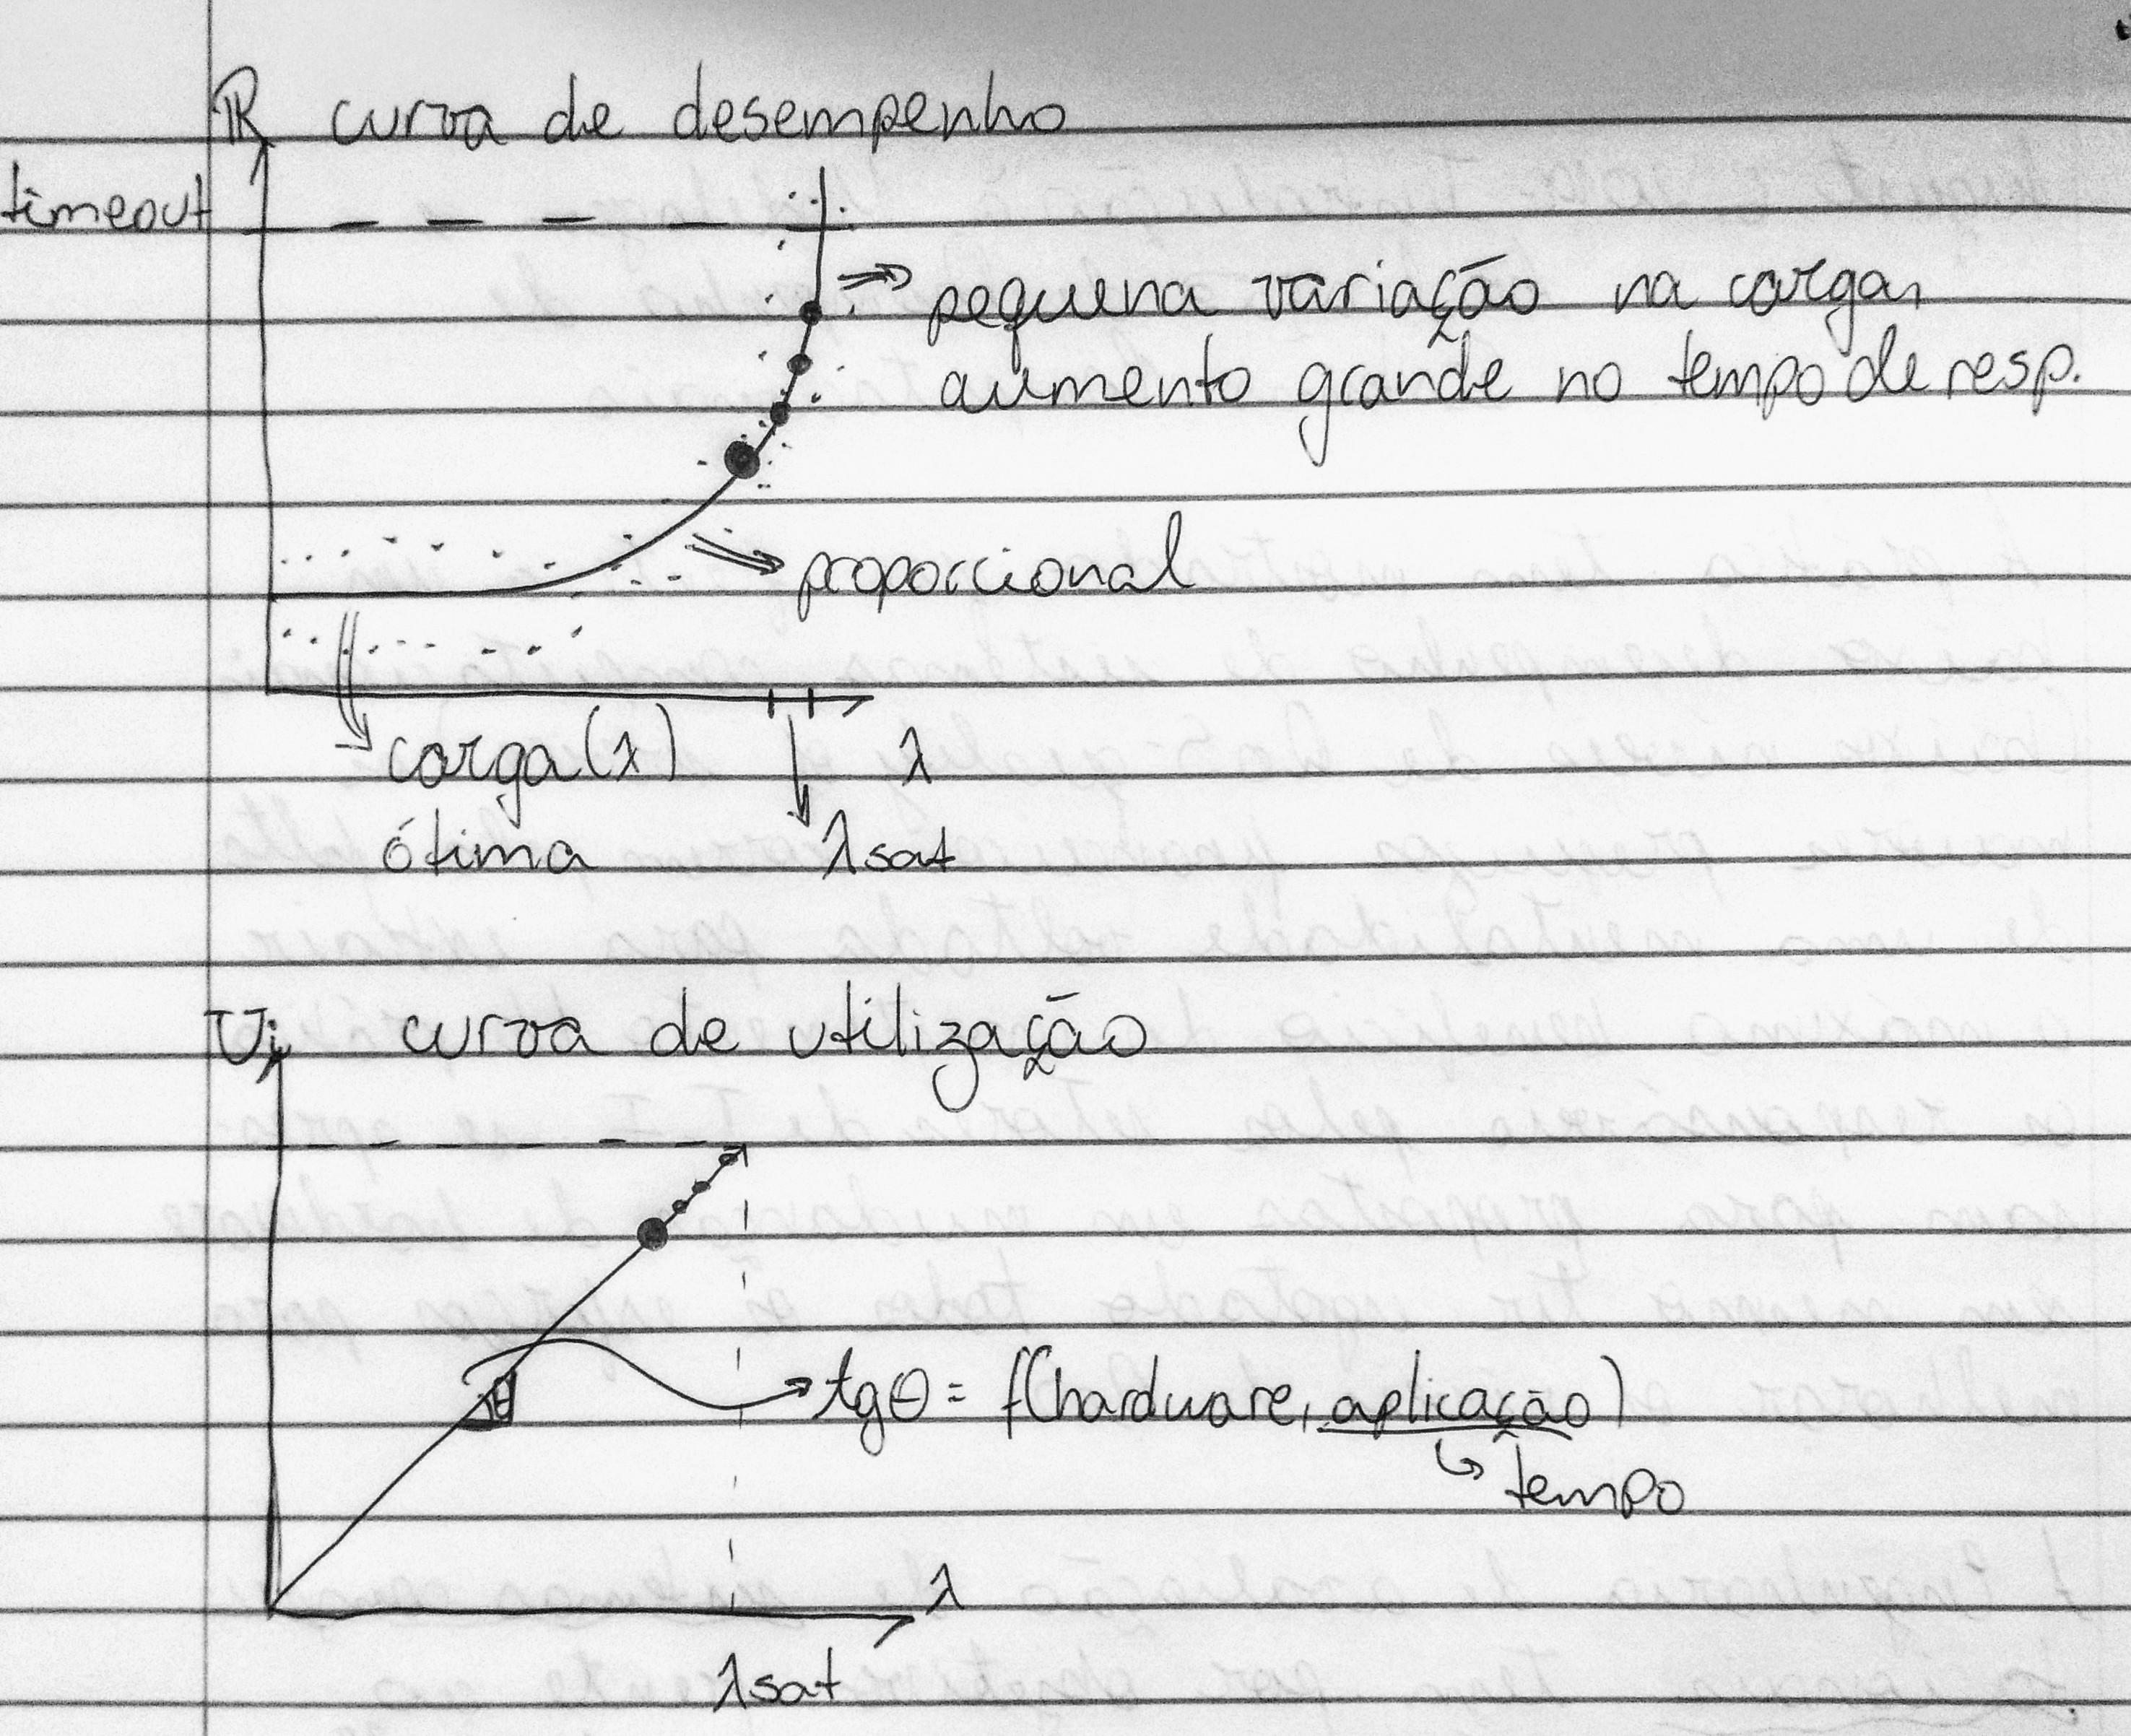 R curva de desempenho
timeout
pequena variação na carga,
aumento grande no tempo de resp.
proporcional
carga (λ)
ótima
λ
λsat
Ui curva de utilização
θ
tgθ = f(hardware, aplicação)
tempo
λ
λsat